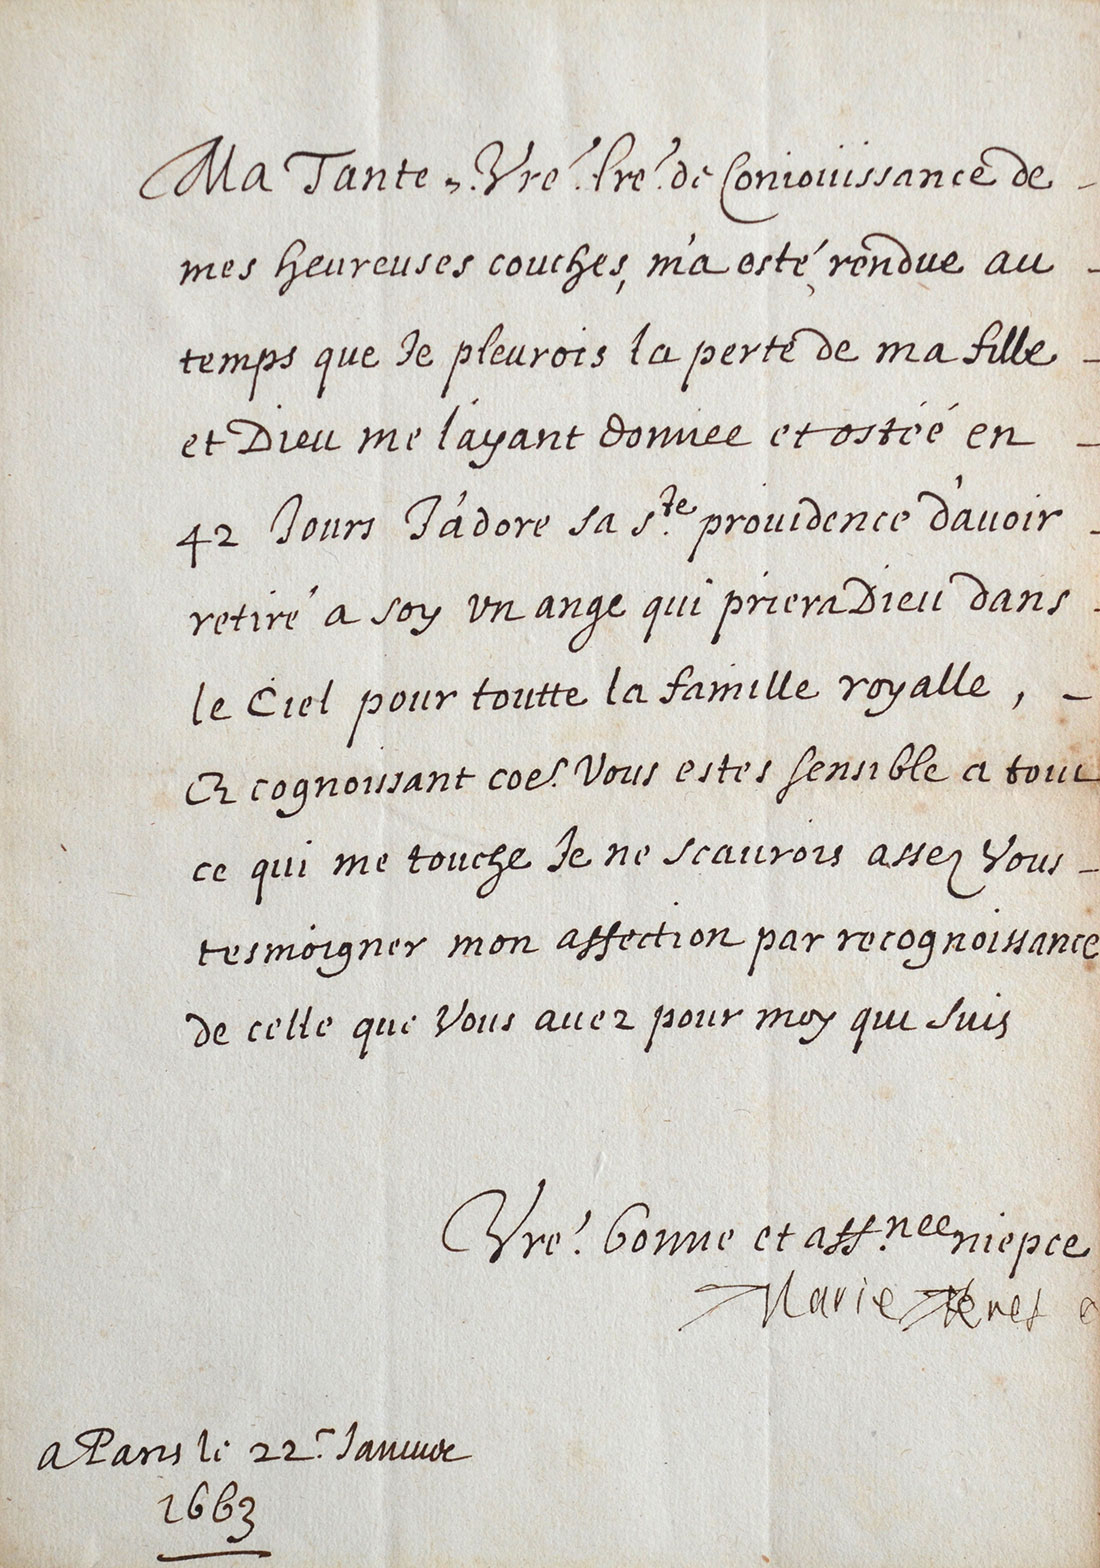 Ma Tante, Vre. lre. de Coniouissance de -
mes heureuses couches, m'a esté rendue au -
temps que Je pleurois la perte de ma fille -
et Dieu me l'ayant donnee et ostéé en -
42 Jours J'adore sa ste. prouidence d'auoir -
retiré a soy vn ange qui priera Dieu dans -
le Ciel pour toutte la famille royalle, -
& cognoissant coe. Vous estes sensible a tout
ce qui me touche Je ne scaurois assez Vous -
tesmoigner mon affection par recognoissance
de celle que Vous auez pour moy qui suis
Vre. bonne et aff.nee niepce
Marie Teres e
a Paris le 22e. Januier
1663